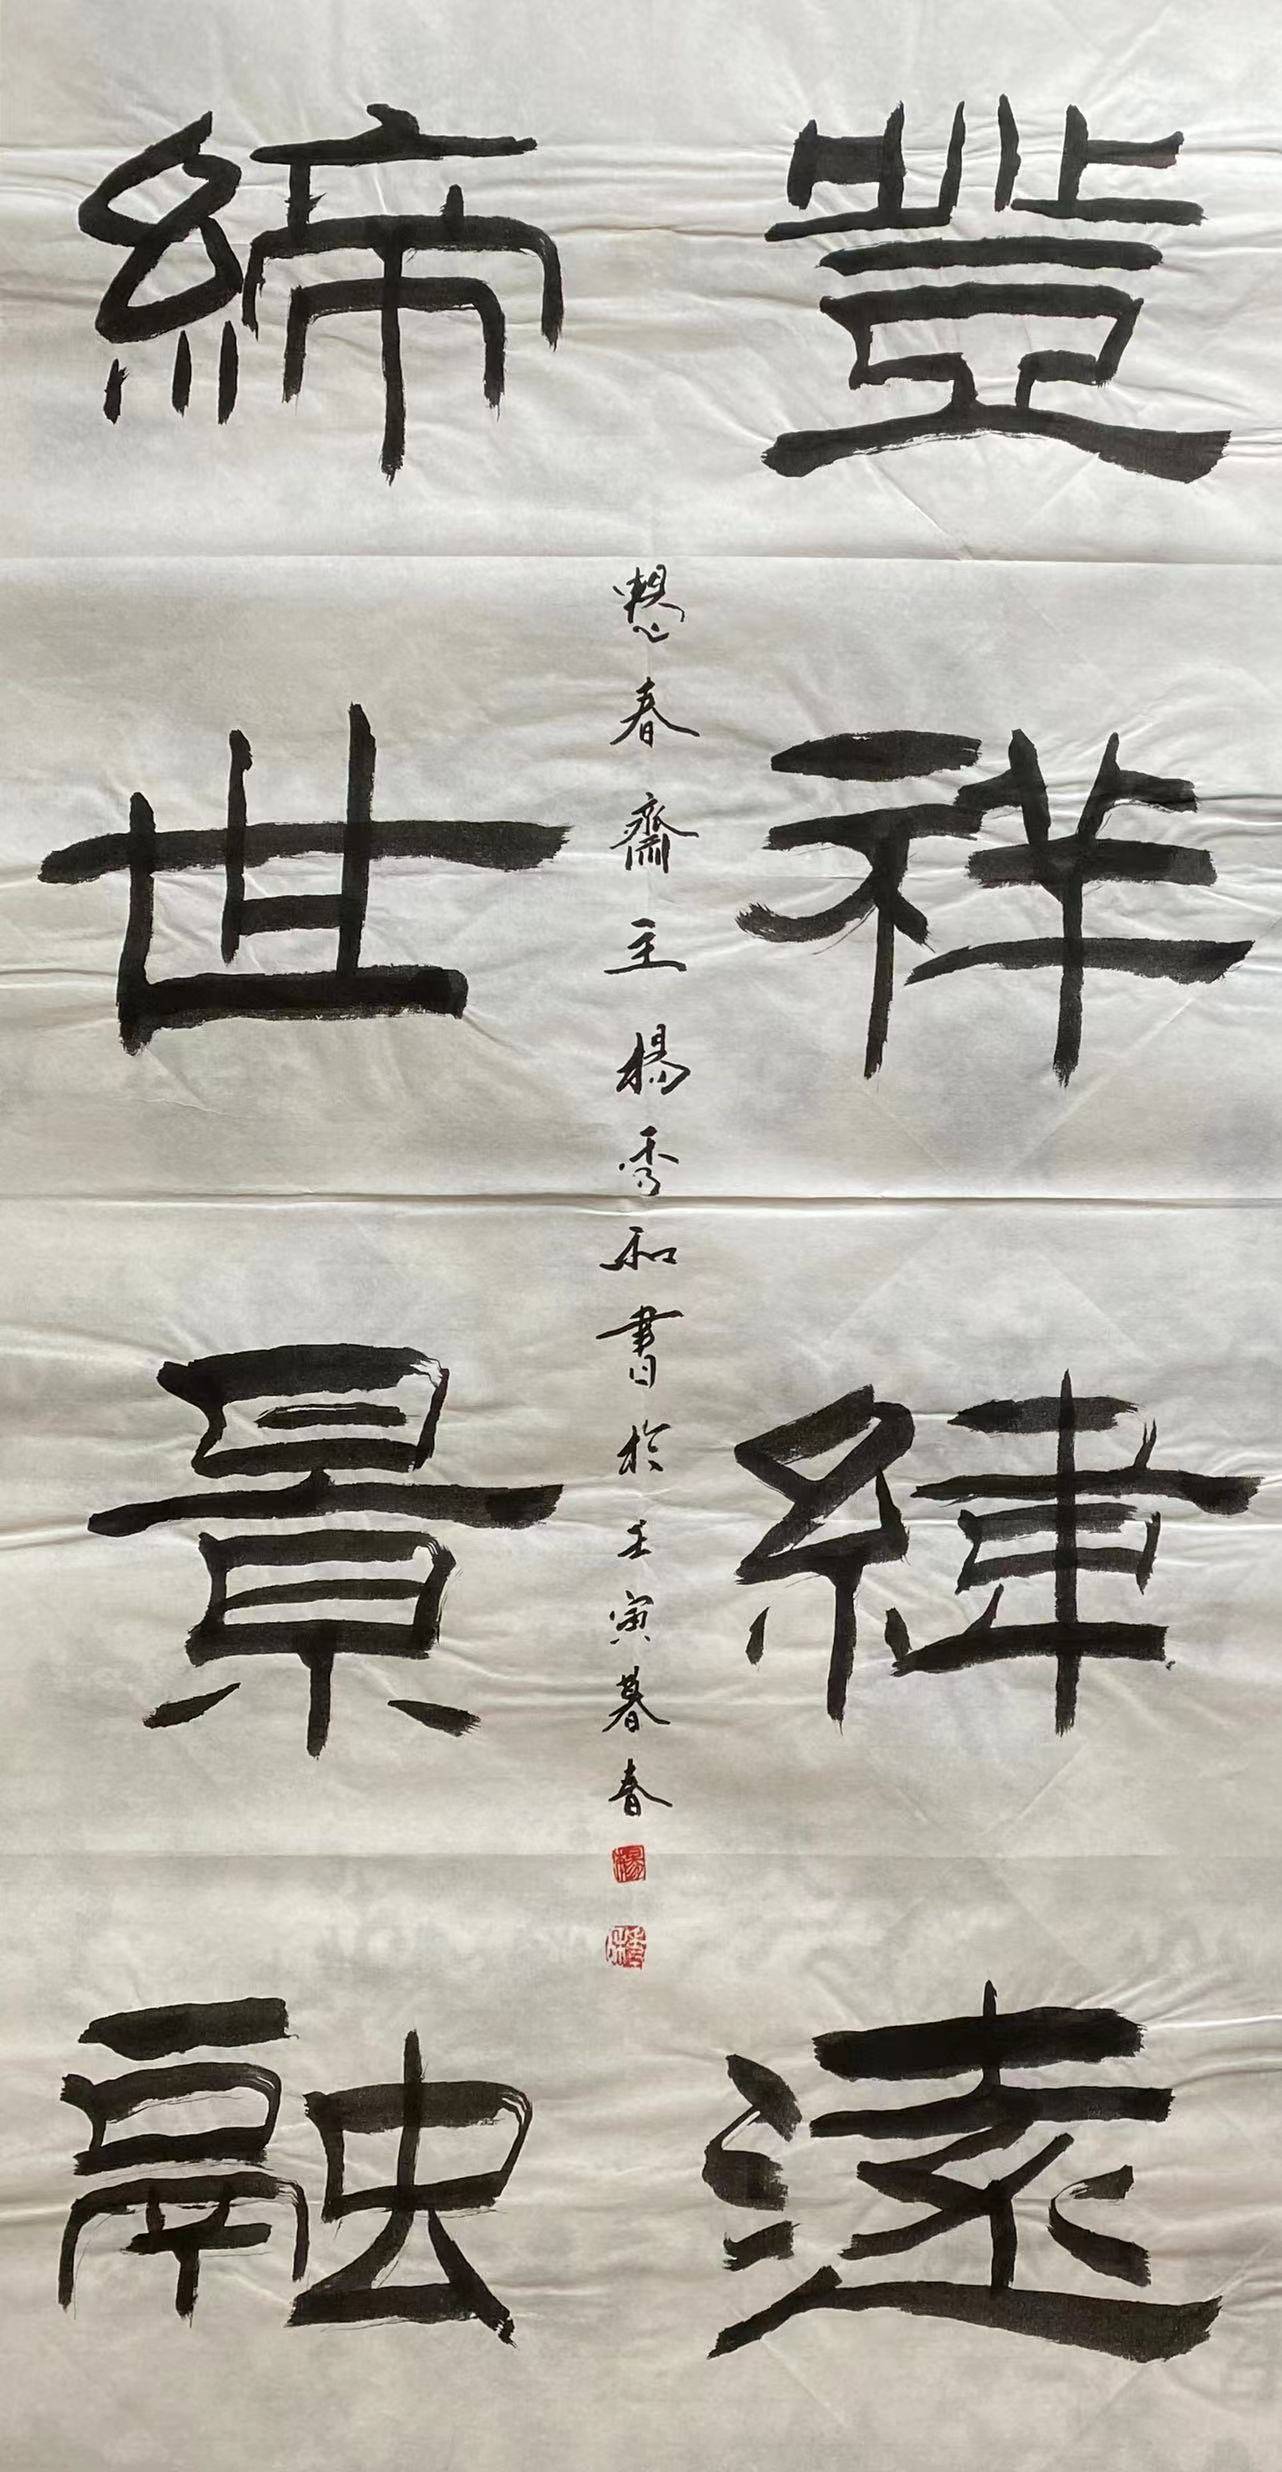 豐祥緯遠
締世景融
春齋主楊秀和書於壬寅暮春
楊